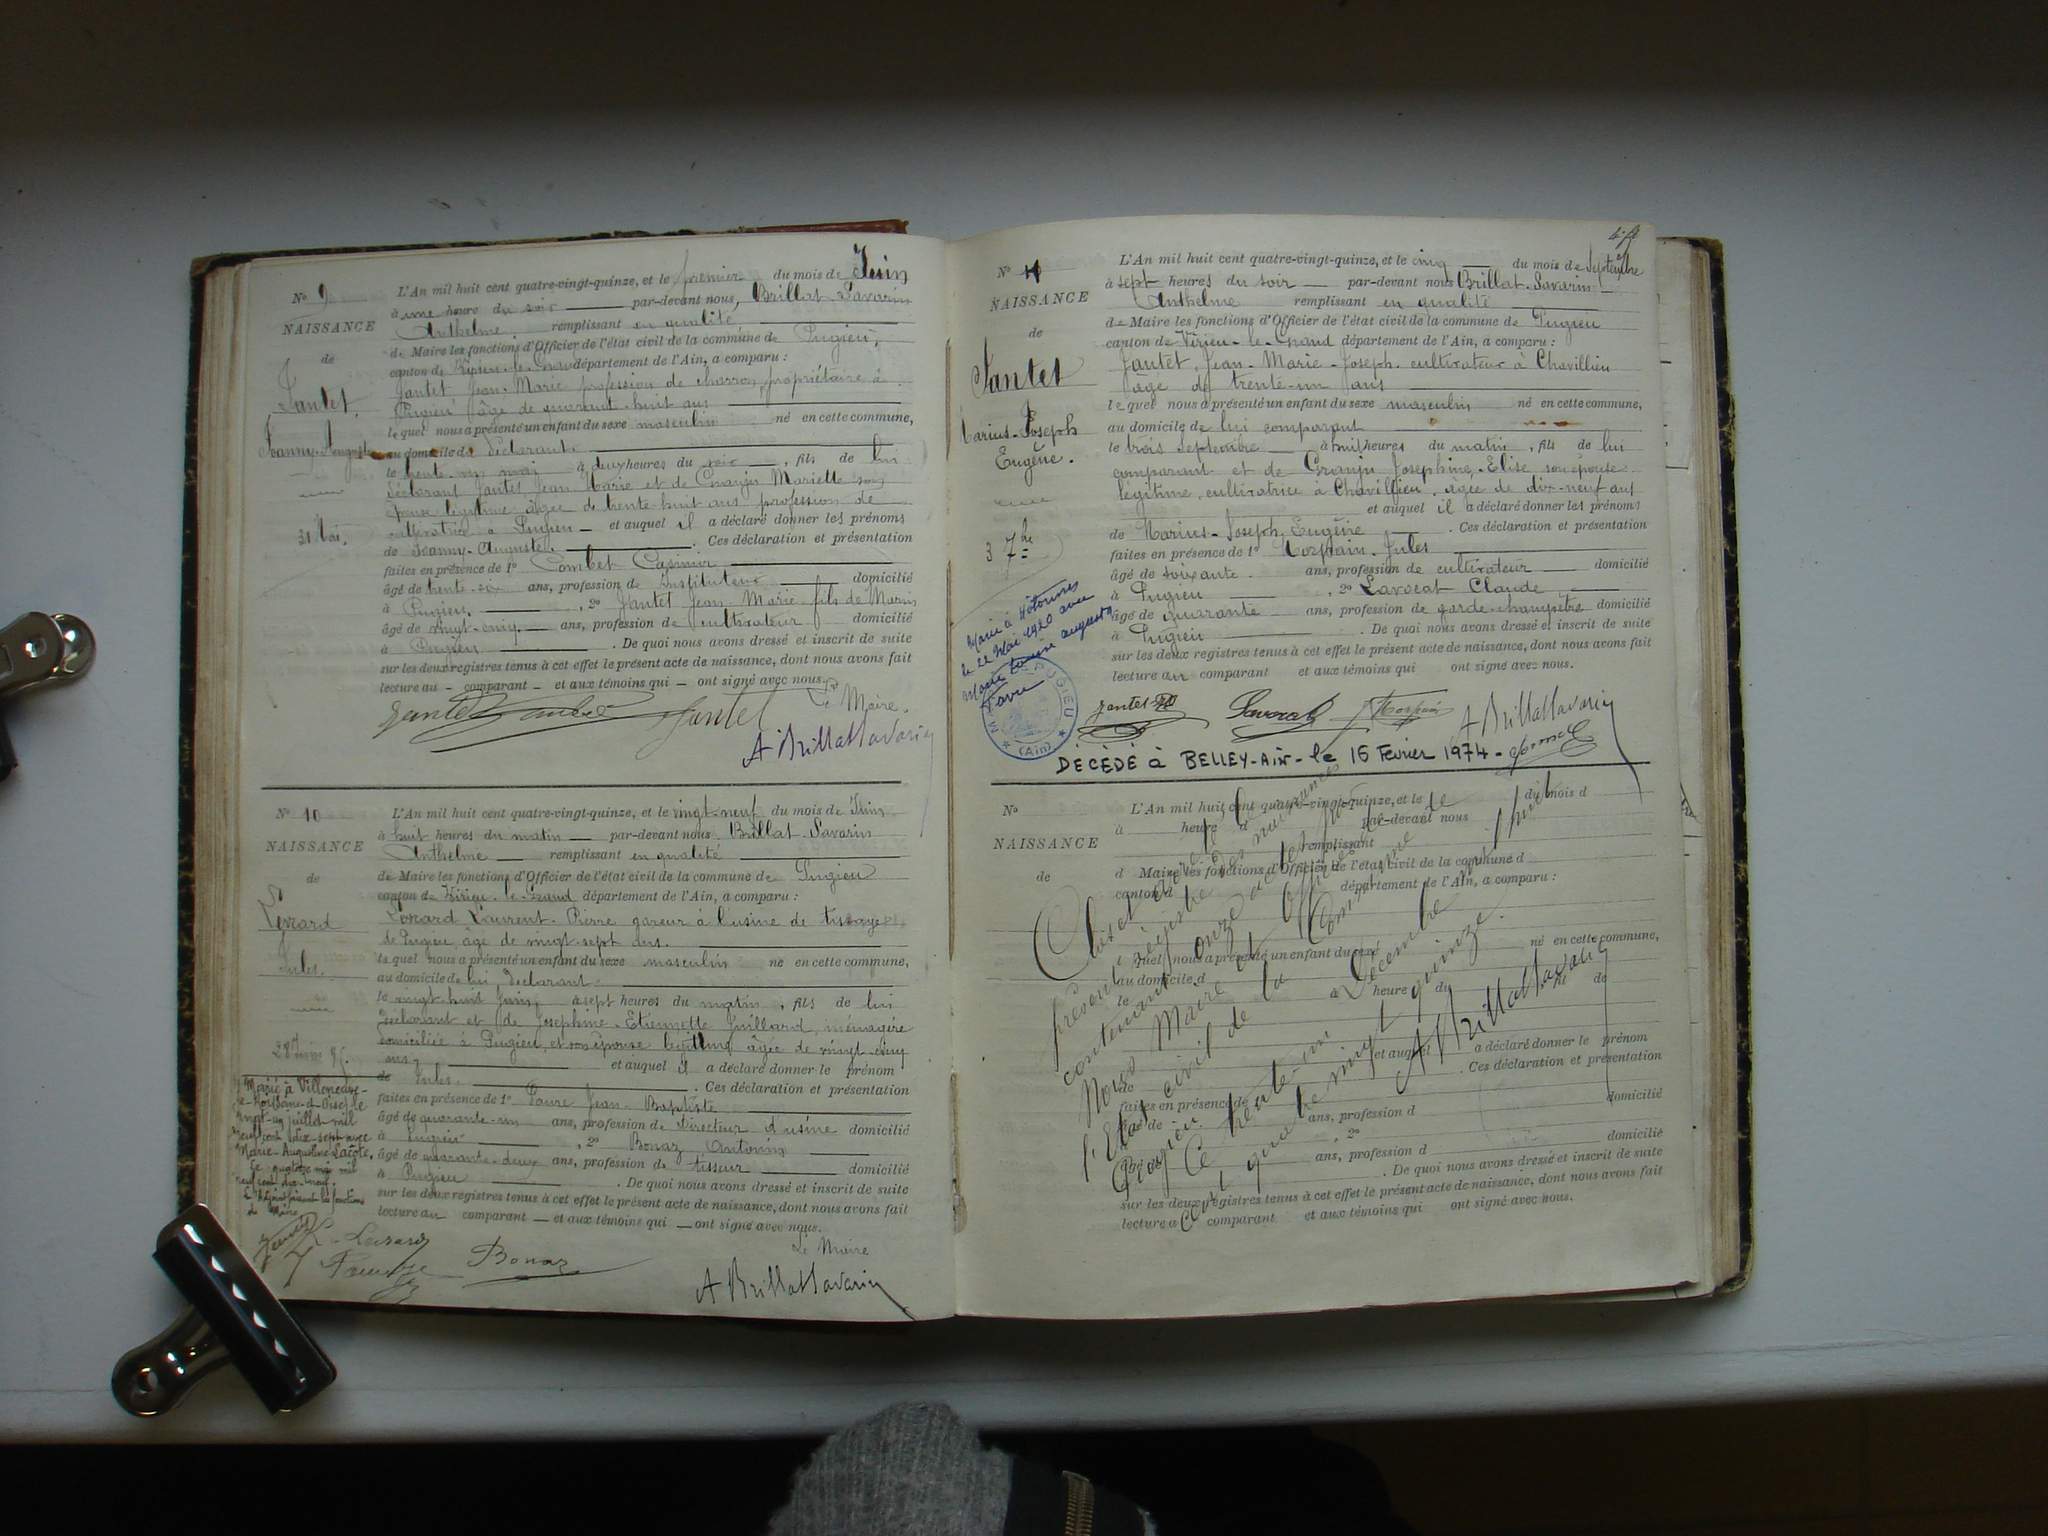 N° 9
NAISSANCE
de
Jantet
Joanny-Auguste
31 Mai.
L'An mil huit cent quatre-vingt-quinze, et le premier du mois de Juin
à une heure du soir par-devant nous, Brillat Savarin
Anthelme remplissant en qualité
de Maire les fonctions d'Officier de l'état civil de la commune de Pugieu,
canton de Virieu-le-Grand département de l'Ain, a comparu :
Jantet Jean-Marie profession de charron, propriétaire à
Pugieu âgé de quarante-huit ans
lequel nous a présenté un enfant du sexe masculin né en cette commune,
au domicile du déclarant
le trente-un mai à deux heures du soir, fils de lui
déclarant Jantet Jean Marie et de Granjin Mariette son
épouse légitime âgée de trente-huit ans profession de
cultivatrice à Pugieu et auquel il a déclaré donner les prénoms
de Joanny-Auguste. Ces déclaration et présentation
faites en présence de 1° Combet Casimir
âgé de trente-six ans, profession de Instituteur domicilié
à Pugieu, 2° Jantet Jean Marie fils de Marin
âgé de vingt-cinq ans, profession de cultivateur domicilié
à Pugieu. De quoi nous avons dressé et inscrit de suite
sur les deux registres tenus à cet effet le présent acte de naissance, dont nous avons fait
lecture au comparant et aux témoins qui ont signé avec nous.
Le Maire.
Jantet Jantet
A Brillat Savarin
N° 10
NAISSANCE
de
Levrard
Jules.
28 Juin 95.
L'An mil huit cent quatre-vingt-quinze, et le vingt-neuf du mois de Juin
à huit heures du matin par-devant nous Brillat-Savarin
Anthelme remplissant en qualité
de Maire les fonctions d'Officier de l'état civil de la commune de Pugieu
canton de Virieu-le-Grand département de l'Ain, a comparu :
Levrard Laurent-Pierre gareur à l'usine de tissage
de Pugieu, âgé de vingt-sept ans.
lequel nous a présenté un enfant du sexe masculin né en cette commune,
au domicile de lui, déclarant
le vingt-huit Juin, à sept heures du matin, fils de lui
déclarant et de Josephine-Etiennette Juillard, ménagère
domiciliée à Pugieu, et son épouse légitime âgée de vingt-cinq
ans, et auquel il a déclaré donner le prénom
de Jules. Ces déclaration et présentation
faites en présence de 1° Faure Jean-Baptiste
âgé de quarante-un ans, profession de Directeur d'usine domicilié
à Pugieu, 2° Bonaz Antonin
âgé de quarante-deux ans, profession de tisseur domicilié
à Pugieu. De quoi nous avons dressé et inscrit de suite
sur les deux registres tenus à cet effet le présent acte de naissance, dont nous avons fait
lecture au comparant et aux témoins qui ont signé avec nous.
Le Maire
Marié à Villeneuve-
vingt-un juillet mil
neuf cent dix-sept avec
Marie-Augustine Lacôte.
Le quatorze mai mil
neuf cent dix-neuf.
L'Adjoint faisant les fonctions
de Maire
Bonaz
A Brillat Savarin
N° 11
NAISSANCE
de
Jantet
Marius-Joseph
Eugène.
3 7bre
L'An mil huit cent quatre-vingt-quinze, et le cinq du mois de Septembre
à sept heures du soir par-devant nous Brillat-Savarin
Anthelme remplissant en qualité
de Maire les fonctions d'Officier de l'état civil de la commune de Pugieu
canton de Virieu-le-Grand département de l'Ain, a comparu :
Jantet, Jean-Marie-Joseph cultivateur à Chavillieu
âgé de trente-un ans
lequel nous a présenté un enfant du sexe masculin né en cette commune,
au domicile de lui comparant
le trois septembre à huit heures du matin, fils de lui
comparant et de Granjin Josephine-Elise son épouse
légitime, cultivatrice à Chavillieu, âgée de dix-neuf ans
et auquel il a déclaré donner les prénoms
de Marius-Joseph Eugène. Ces déclaration et présentation
faites en présence de 1° Morpain Jules
âgé de soixante ans, profession de cultivateur domicilié
à Pugieu, 2° Lavocat Claude
âgé de quarante ans, profession de garde-champêtre domicilié
à Pugieu. De quoi nous avons dressé et inscrit de suite
sur les deux registres tenus à cet effet le présent acte de naissance, dont nous avons fait
lecture au comparant et aux témoins qui ont signé avec nous.
Marié à Hotonnes
le 22 Mai 1920 avec
Marie Louise Augusta
Favre
PUGIEU
(Ain)
Jantet Lavocat Morpain A Brillat Savarin
DÉCÉDÉ à BELLEY-Ain-le 16 Février 1974-
N°
NAISSANCE
de
L'An mil huit cent quatre-vingt-quinze, et le du mois d
à heure d par-devant nous
remplissant
d Maire les fonctions d'Officier de l'état civil de la commune d
canton d département de l'Ain, a comparu :
quel nous a présenté un enfant du sexe né en cette commune,
au domicile d
le à heure du fil de
et auquel a déclaré donner le prénom
de. Ces déclaration et présentation
faites en présence de 1°
âgé de ans, profession d domicilié
à, 2°
âgé de ans, profession d domicilié
à. De quoi nous avons dressé et inscrit de suite
sur les deux registres tenus à cet effet le présent acte de naissance, dont nous avons fait
lecture a comparant et aux témoins qui ont signé avec nous.
Clos et arrêté le
présent registre des naissances
contenant onze actes par
Nous Maire et Officier de
l'Etat civil de la Commune de
Pugieu. Ce trente-un Décembre mil huit
cent quatre vingt quinze.
A Brillat Savarin